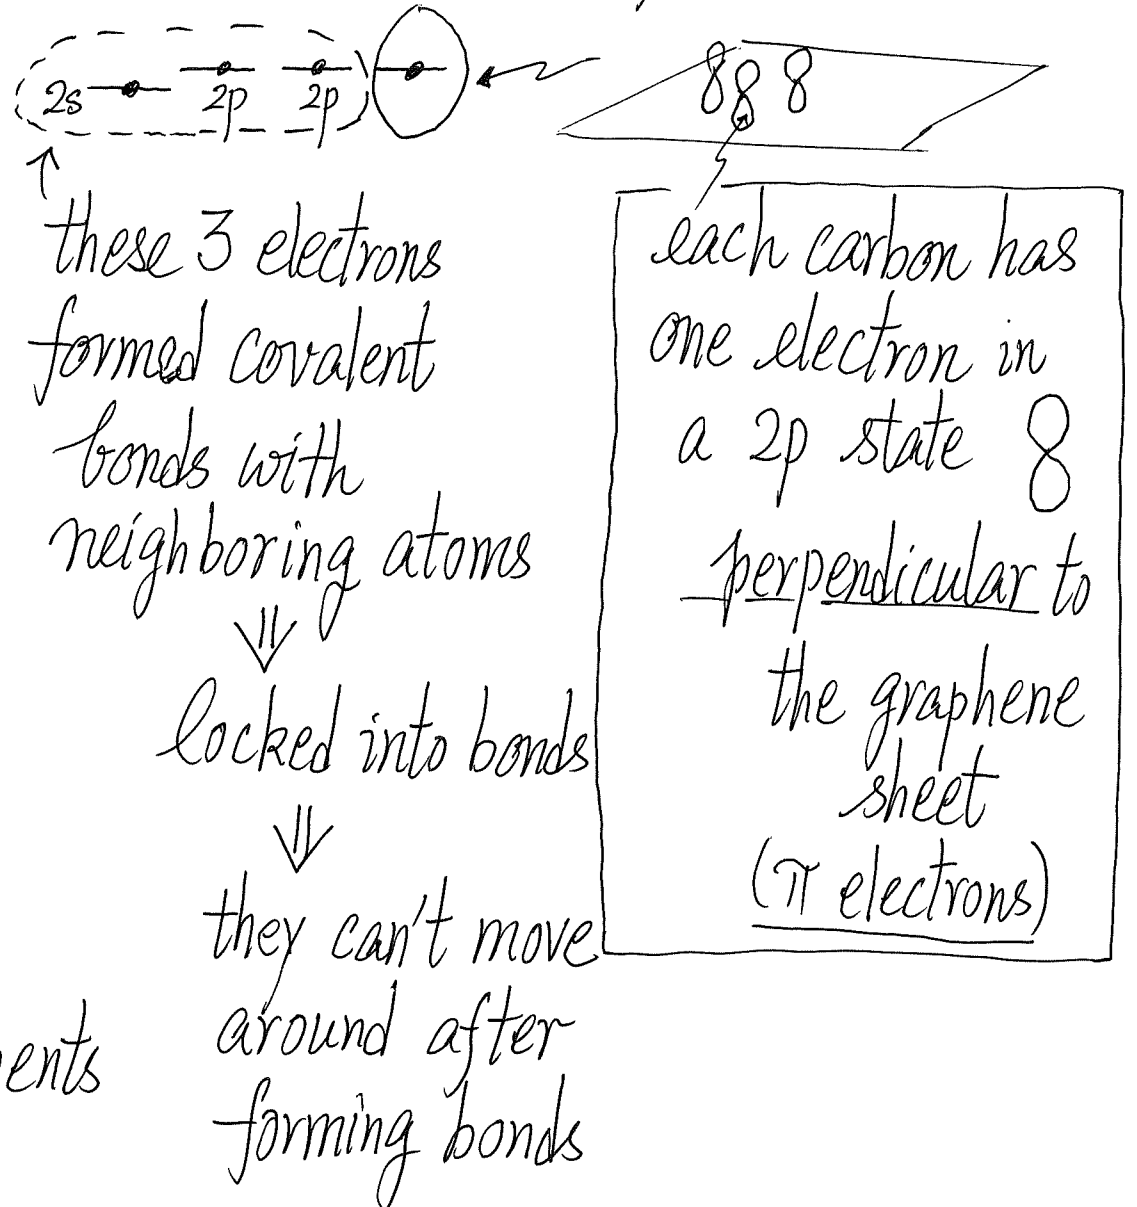 2s 2p 2p
these 3 electrons
formed covalent
bonds with
neighboring atoms
⇓
locked into bonds
⇓
they can't move
around after
forming bonds
ents
each carbon has
one electron in
a 2p state 8
perpendicular to
the graphene
sheet
(π electrons)